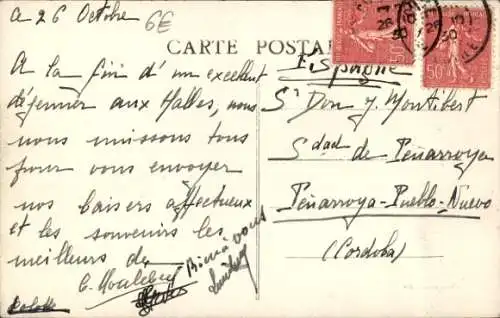 a 26 Octobre
6E
CARTE POSTALE
Espagne
A la fin d'un excellent
déjeuner aux Halles, nous
nous unissons tous
pour vous envoyer
nos baisers affectueux
et les souvenirs les
meilleurs de
Sr Don J. Montibert
Sdad de Peñarroya
Peñarroya-Pueblo-Nuevo
(Cordoba)
Bien à vous
50c
50c